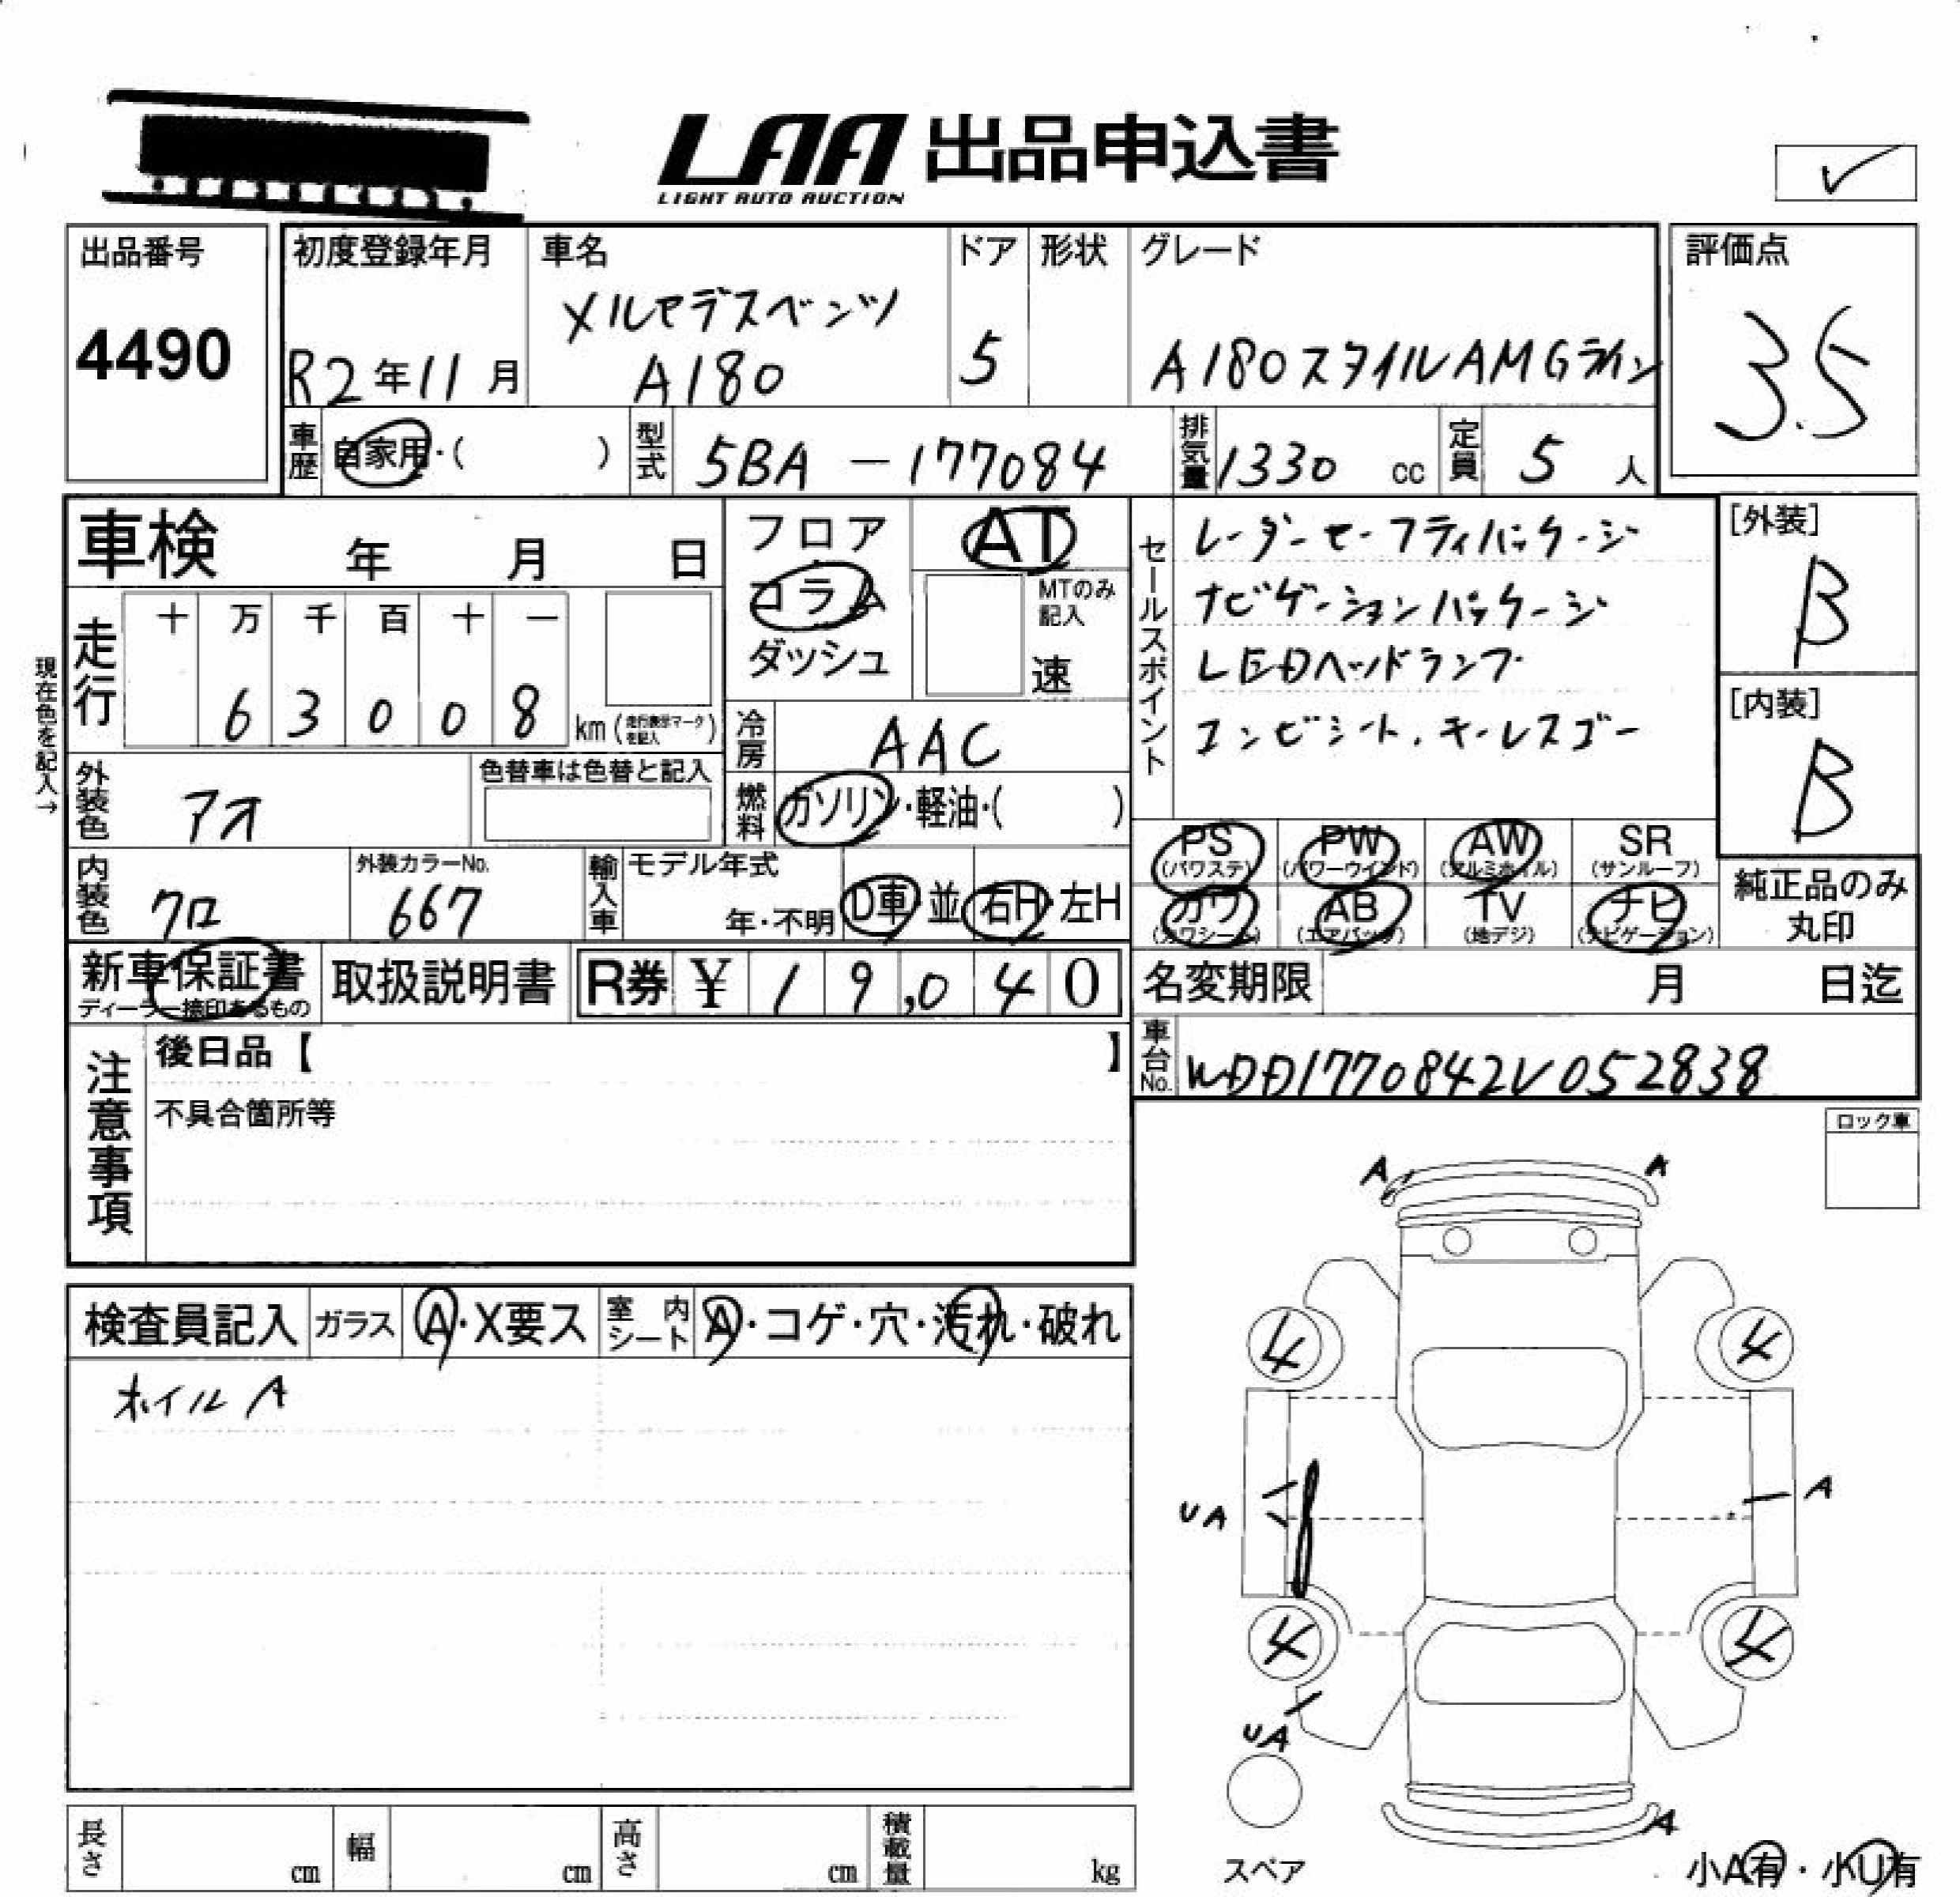 LAA 出品申込書
LIGHT AUTO AUCTION
✓
出品番号
4490
初度登録年月
R2年11月
車名
メルセデスベンツ
A180
ドア
5
形状
グレード
A180スタイルAMGライン
評価点
3.5
車歴 自家用・( )
型式 5BA-177084
排気量 1330 cc
定員 5 人
車検 年 月 日
フロア
コラム
ダッシュ
AT
MTのみ記入
速
セールスポイント
レーダーセーフティパッケージ
ナビゲーションパッケージ
LEDヘッドランプ
コンビシート、キーレスゴー
[外装]
B
[内装]
B
現在色を記入→
走行
十 万 千 百 十 一
6 3 0 0 8 km(走行表示マークを記入)
冷房 AAC
外装色 アオ
色替車は色替と記入
燃料 ガソリン・軽油・( )
PS (パワステ)
PW (パワーウインド)
AW (アルミホイル)
SR (サンルーフ)
内装色 クロ
外装カラーNo.
667
輸入車
モデル年式
年・不明
D車・並
右H・左H
カワ (カワシート)
AB (エアバック)
TV (地デジ)
ナビ (ナビゲーション)
純正品のみ
丸印
新車保証書
ディーラー捺印あるもの
取扱説明書
R券 ¥ 19,040
名変期限 月 日迄
注意事項
後日品【 】
不具合箇所等
車台No. WDD1770842V052838
ロック車
A A
検査員記入 ガラス A・X要ス 室内シート A・コゲ・穴・汚れ・破れ
ホイルA
4 4
UA A
4 4
UA
A
スペア
小A有・小U有
長さ cm 幅 cm 高さ cm 積載量 kg